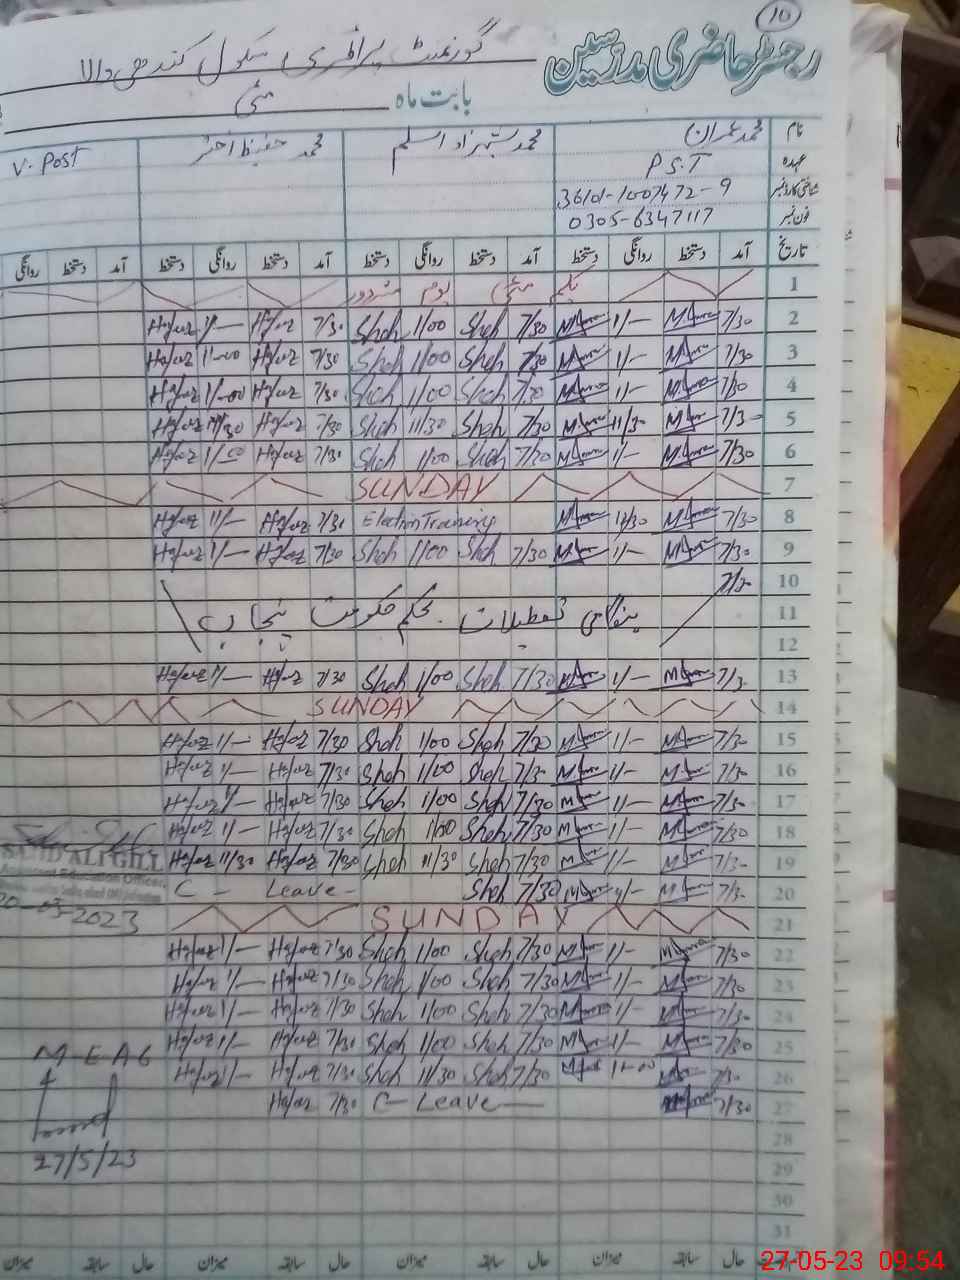 10
رجسٹر حاضری مدرسین
گورنمنٹ پرائمری سکول کندھی والا
بابت ماہ مئی
نام محمد عمران محمد شہزاد اسلم محمد حفیظ اختر V. Post
عہدہ P.S.T
شناختی کارڈ نمبر 36101-1007472-9
فون نمبر 0305-6347117
تاریخ آمد دستخط روانگی دستخط آمد دستخط روانگی دستخط آمد دستخط روانگی دستخط آمد دستخط روانگی
1 یکم مئی یوم مزدور
2 7/30 1/- 7/30 Sheh 1/00 Sheh 7/30 Hafeez 1/- Hafeez
3 7/30 1/- 7/30 Sheh 1/00 Sheh 7/30 Hafeez 1-00 Hafeez
4 7/30 1/- 7/30 Sheh 1/00 Sheh 7/30 Hafeez 1/-00 Hafeez
5 7/30 11/30 7/30 Sheh 11/30 Sheh 7/30 Hafeez 11/30 Hafeez
6 7/30 1/- 7/30 Sheh 1/00 Sheh 7/30 Hafeez 1/00 Hafeez
7 SUNDAY
8 7/30 11/30 Election Training 7/30 Hafeez 1/- Hafeez
9 7/30 1/- 7/30 Sheh 1/00 Sheh 7/30 Hafeez 1/- Hafeez
10 7/30
11 ہنگامی تعطیلات بحکم حکومت پنجاب
12
13 7/30 1/- 7/30 Sheh 1/00 Sheh 7/30 Hafeez 1/- Hafeez
14 SUNDAY
15 7/30 1/- 7/30 Sheh 1/00 Sheh 7/30 Hafeez 1/- Hafeez
16 7/30 1/- 7/30 Sheh 1/00 Sheh 7/30 Hafeez 1/- Hafeez
17 7/30 1/- 7/30 Sheh 1/00 Sheh 7/30 Hafeez 1/- Hafeez
18 7/30 1/- 7/30 Sheh 1/00 Sheh 7/30 Hafeez 1/- Hafeez
19 7/30 1/- 7/30 Sheh 11/30 Sheh 7/30 Hafeez 11/30 Hafeez
SAJID ALI GILL
Assistant Education Officer
20 7/30 1/- 7/30 Sheh C - Leave -
20-05-2023
21 SUNDAY
22 7/30 1/- 7/30 Sheh 1/00 Sheh 7/30 Hafeez 1/- Hafeez
23 7/30 1/- 7/30 Sheh 1/00 Sheh 7/30 Hafeez 1/- Hafeez
24 7/30 1/- 7/30 Sheh 1/00 Sheh 7/30 Hafeez 1/- Hafeez
25 7/30 1/- 7/30 Sheh 1/00 Sheh 7/30 Hafeez 1/- Hafeez
M-E-A 6
26 7/30 1-00 7/30 Sheh 11/30 Sheh 7/30 Hafeez 1/- Hafeez
27 7/30 C- Leave 7/30 Hafeez
28
27/5/23
29
30
31
حال سابقہ میزان حال سابقہ میزان حال سابقہ میزان حال سابقہ میزان
27-05-23 09:54